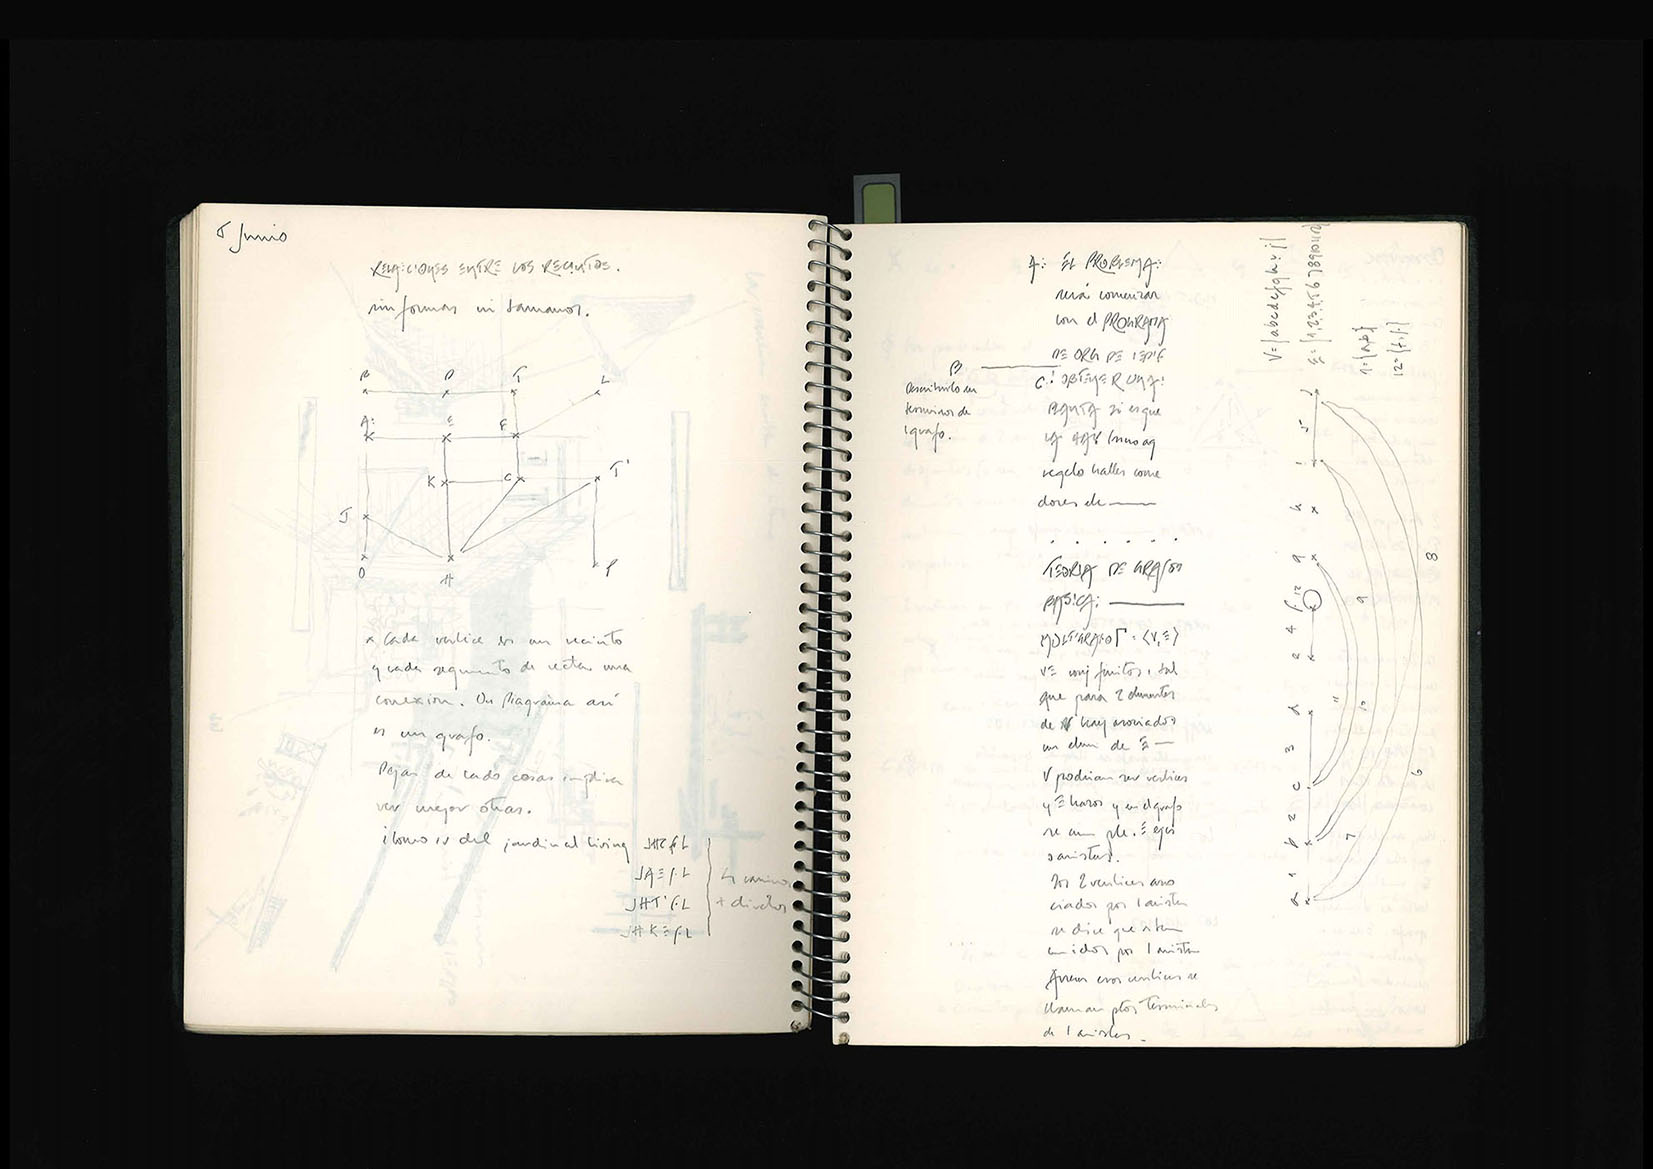 5 Junio
RELACIONES ENTRE LOS RECINTOS.
sin formas ni tamaños.
B D T L
A E F
K C T'
J
O H P
x Cada vertice es un recinto
y cada segmento de recta una
conexion. Un Diagrama así
es un grafo.
Dejar de lado cosas implica
ver mejor otras.
¿Como ir del jardin al living JHCFL
JAEFL
JHT'FL
JHKEFL
4 caminos
+ directos
A: EL PROBLEMA:
será comenzar
con el PROGRAMA
DE ORG DE 1 EDIF
B
Describirlo en
terminos de
1 grafo.
C: OBTENER UNA
PLANTA si es que
dores de
TEORIA DE GRAFOS
BASICA:
MULTIGRAFO Γ = ⟨V,E⟩
VE conj finitos, tal
que para 2 elementos
de V hay asociados
un elem de E
V podrian ser vertices
y E lazos y en el grafo
aristas.
los 2 vertices aso
ciados por 1 arista
se dice que estan
unidos por 1 arista
esos vertices se
llaman ptos terminales
de 1 arista.
V={abcdefghij}
E={1 2 3 4 5 6 7 8 9 10 11 12}
1={a,b}
12={f,f}
a 1 b 2 c 3 d e 4 f 12 g h i 5 j
11 10 9 7 6 8